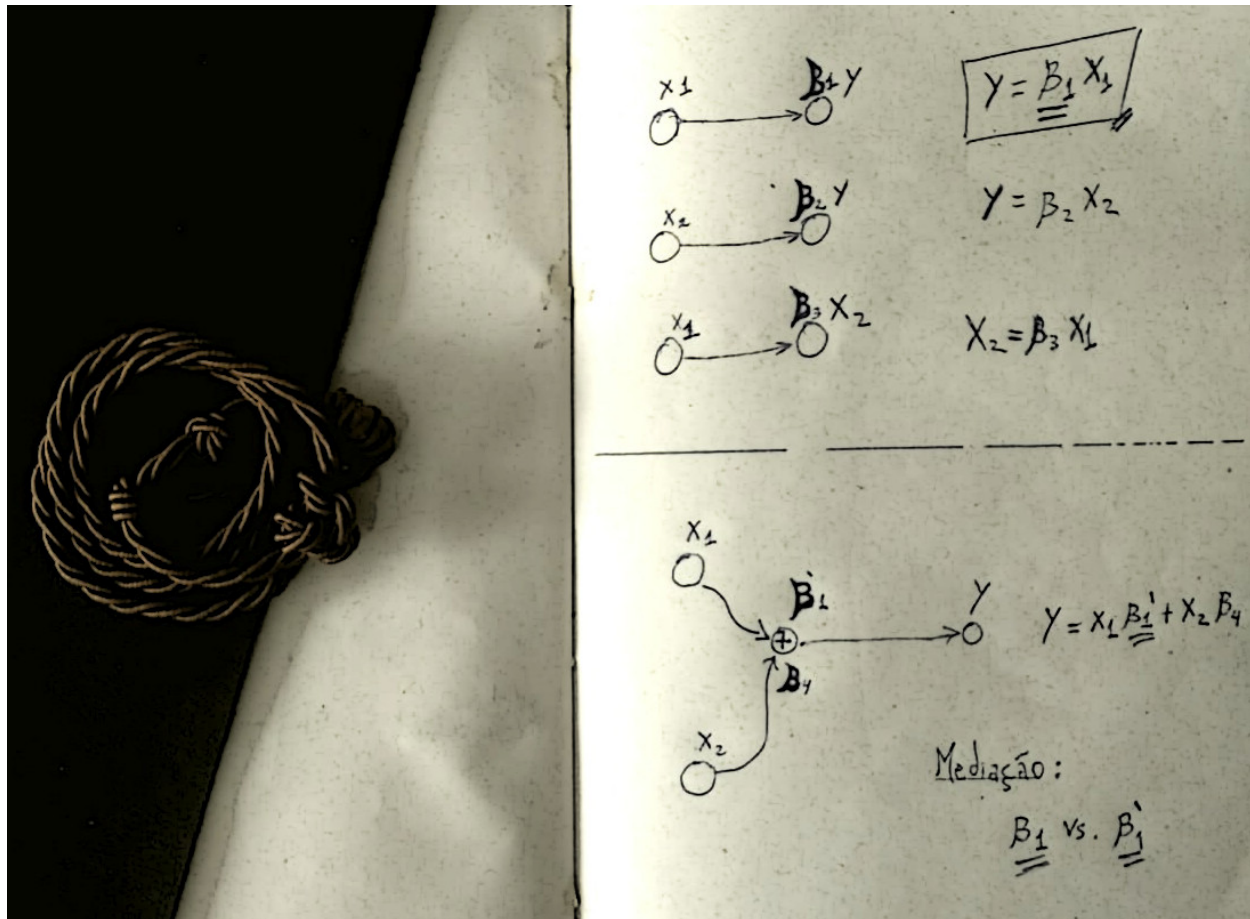 X1 β1 Y Y = β1 X1
X2 β2 Y Y = β2 X2
X1 β3 X2 X2 = β3 X1
X1
β'1 Y
+ Y = X1 β'1 + X2 β4
β4
X2
Mediação:
β1 vs. β'1